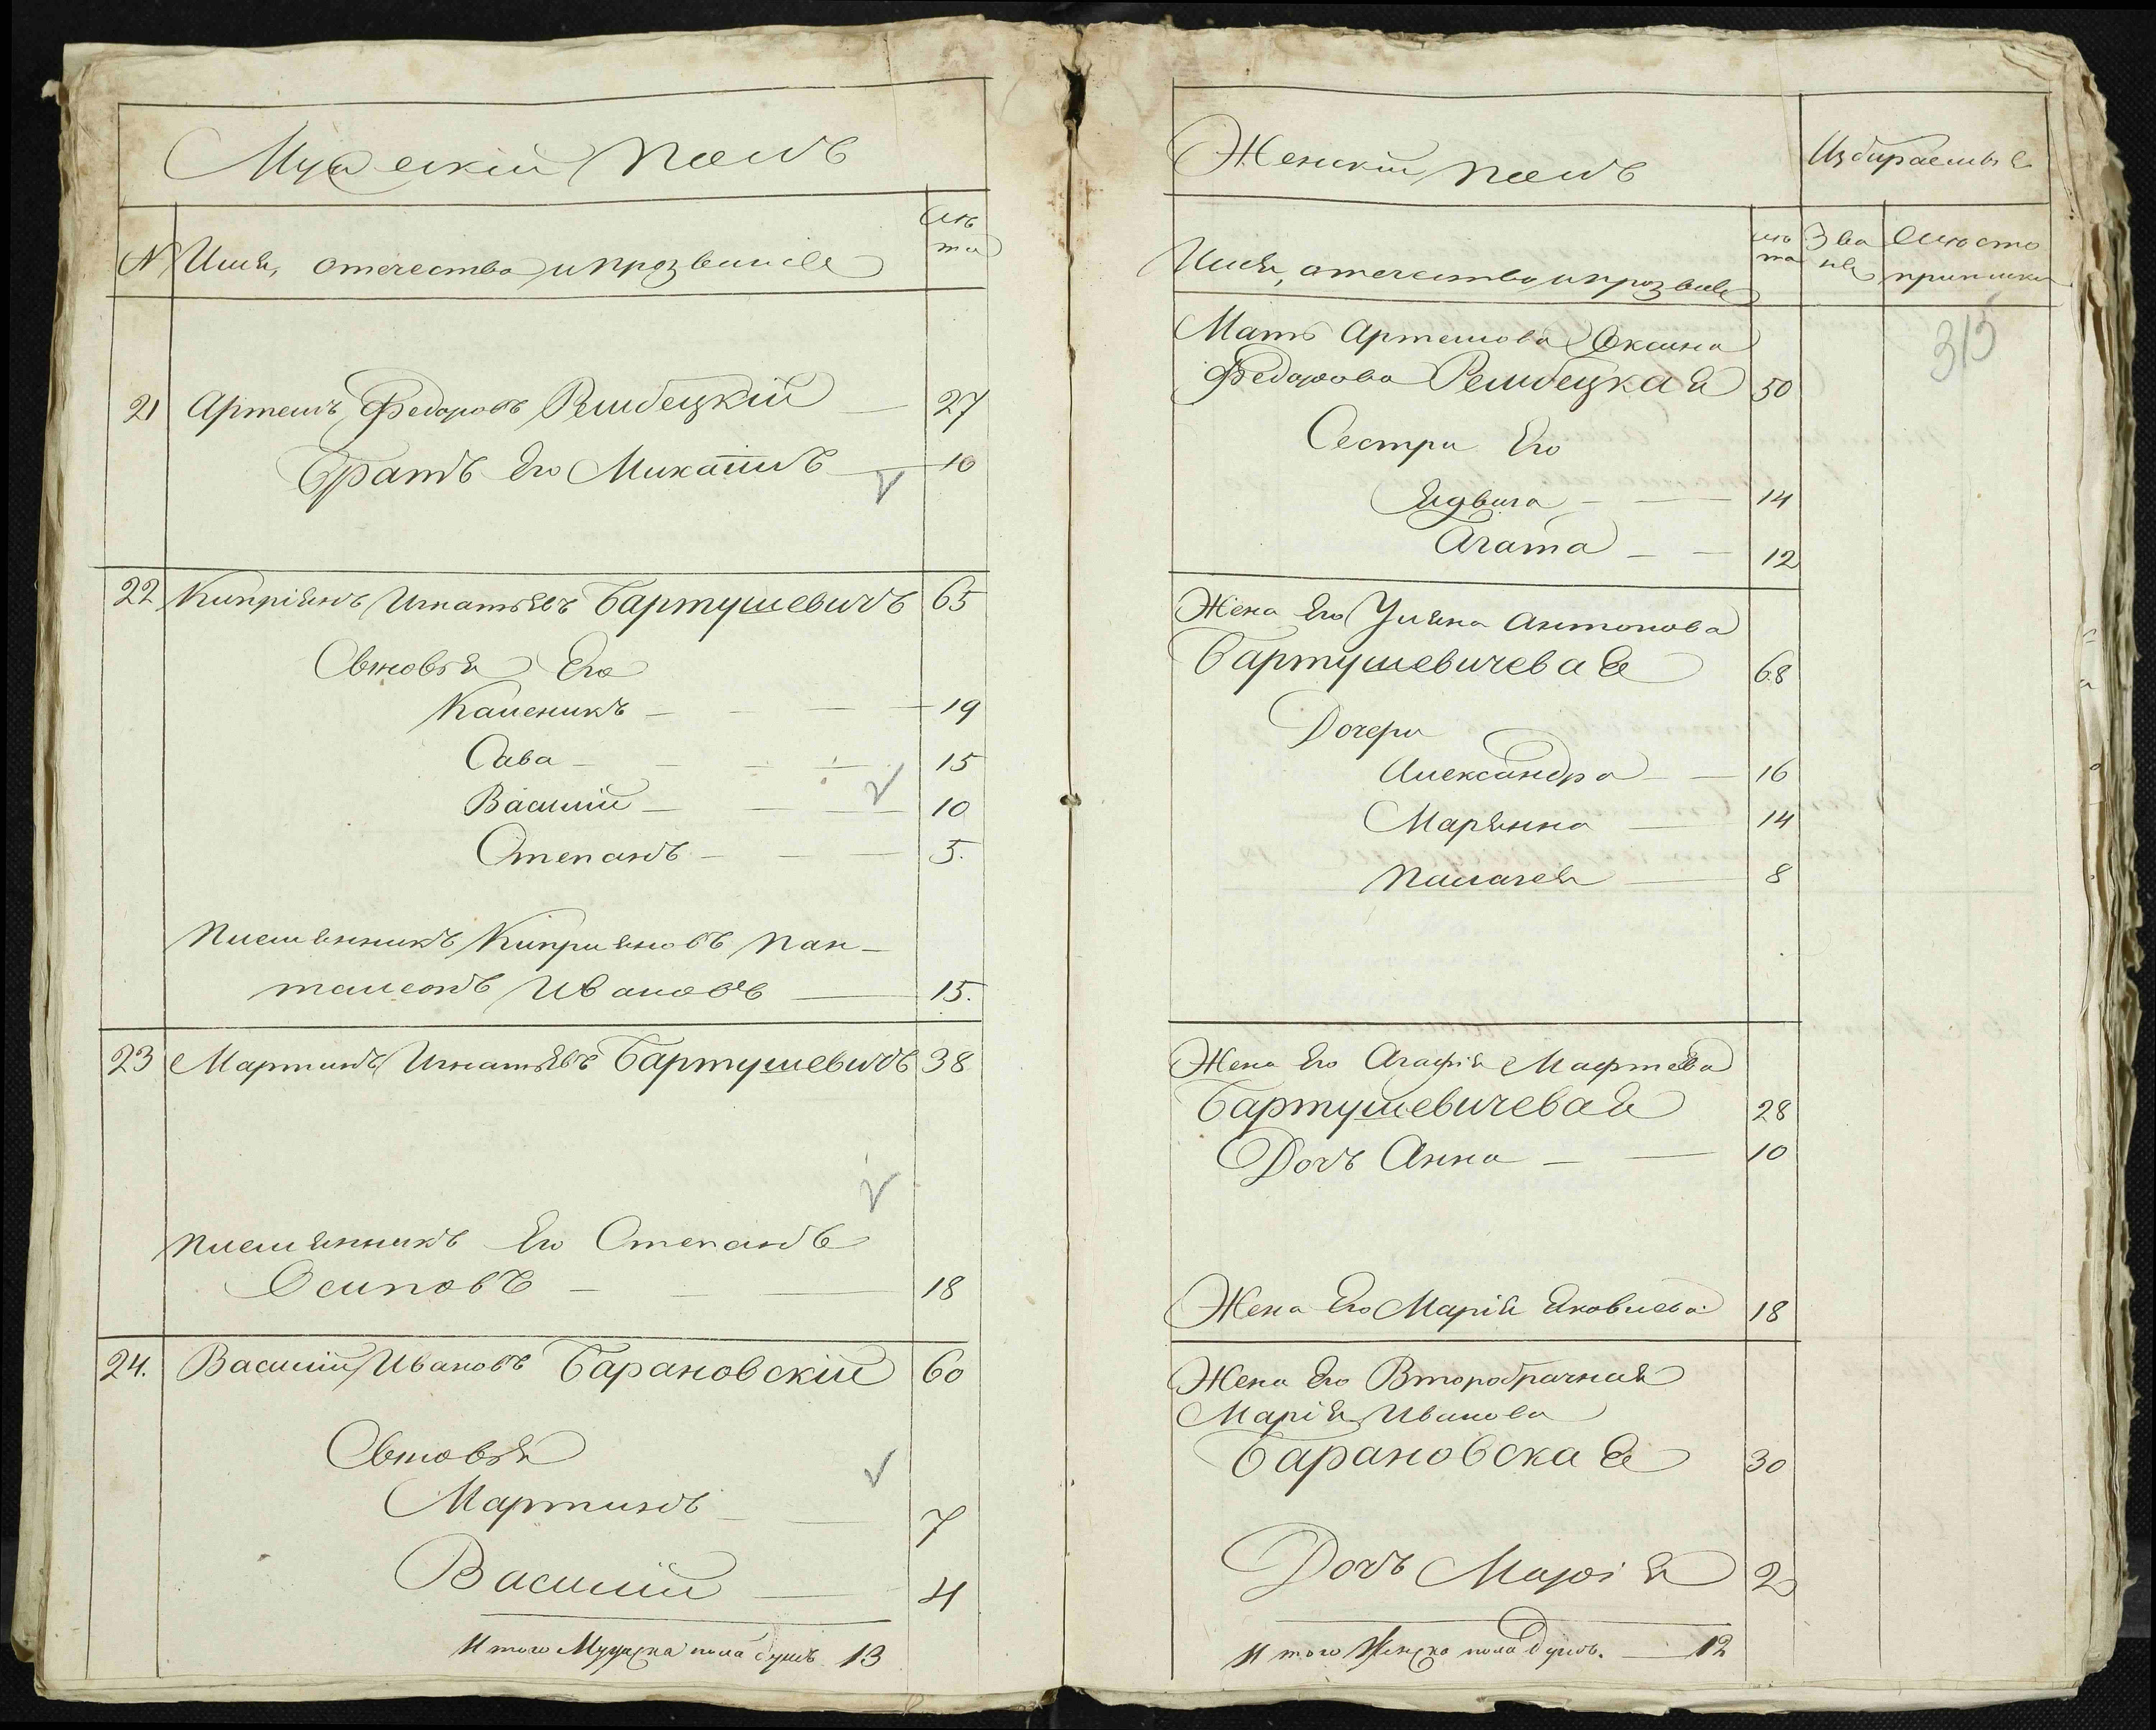 Мужескій полъ
№ Имя, отечество и прозваніе
лѣ
та
21 Артемъ Федоровъ Рембецкій — 27
Братъ Его Михаилъ — 10
22 Кипріянъ Игнатьевъ Бартушевичъ 65
Сыновья Его
Каленикъ — 19
Сава — 15
Василій — 10
Степанъ — 5.
Племянникъ Киприяновъ Пан-
талеонъ Ивановъ — 15.
23 Мартинъ Игнатьевъ Бартушевичъ 38
Племянникъ Его Степанъ
Осиповъ — 18
24. Василій Ивановъ Барановскій 60
Сыновья
Мартинъ — 7
Василій — 4
Итого Мужска пола душъ 13
Женскій полъ
Избираемые
Имя, отечество и прозваніе
лѣ
та
Зва
ніе
Место
приписки
Мать Артемова Оксина
Федорова Рембецкая 50
315
Сестри Его
Ядвига — 14
Агата — 12
Жена Его Уляна Антонова
Бартушевичевая 68
Дочери
Александра — 16
Марянна — 14
Палагея — 8
Жена Его Агафія Мафтеева
Бартушевичевая 28
Дочь Анна — 10
Жена Его Марія Яковлева 18
Жена Его Второбрачная
Марія Иванова
Барановская 30
Дочь Марія 2
Итого Женска пола душъ. — 12